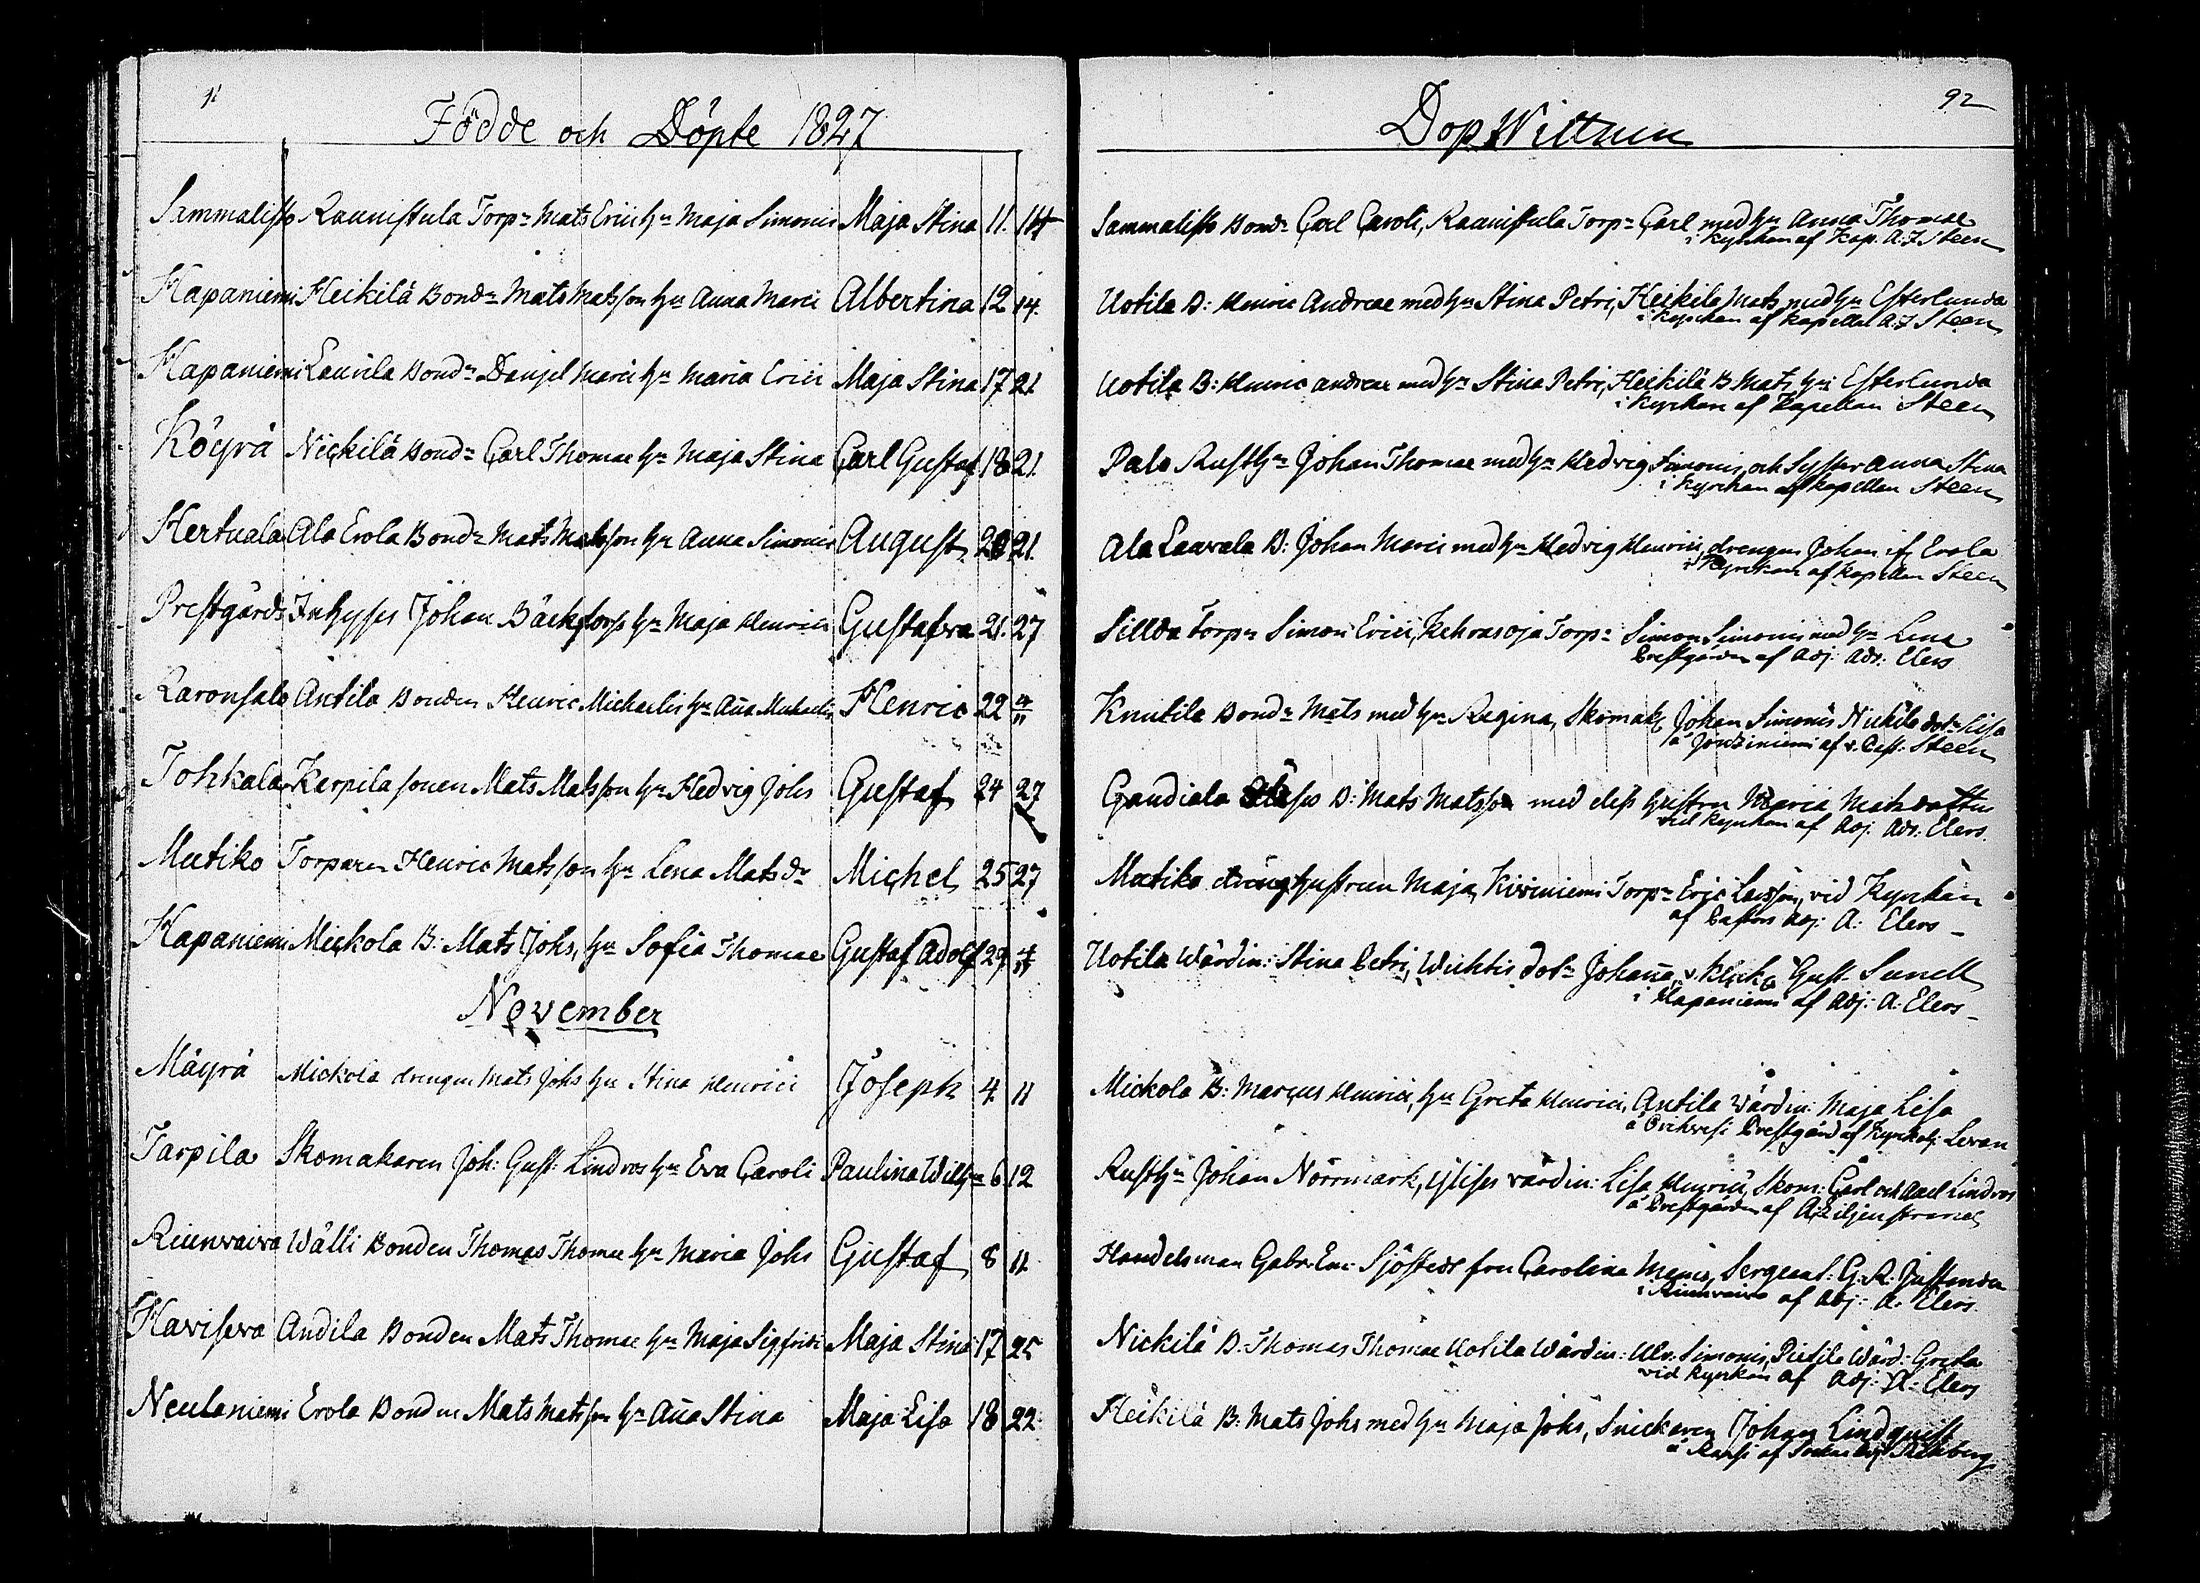 Födde och Döpte 1827
Sammalisto Raunistula Torp:n Mats Erici h:u Maja Simonis Maja Stina 11. 14
Hapaniemi Heikilä Bond:n Mats Matsson h:u Anna Marci Albertina 12 14.
Hapaniemi Laurila Bond:n Daniel Marci h:u Maria Erici Maja Stina 17 21
Köyrä Nickilä Bond:n Carl Thomae h:u Maja Stina Carl Gustaf 18 21.
Hertuala Ala Erola Bond:n Mats Matsson h:u Anna Simonis August 20 21.
Prestgårds Inhyses Johan Bäckstorp h:u Maja Henrici Gustafva 21. 27
Karonsalo Antila Bonden Henric Michaelis h:u Aña Michaelis Henric 22 4/11
Tohkala Karpila sonen Mats Matsson h:u Hedvig Johs Gustaf 24 27
Mutiko Torparen Henric Matsson h:u Lena Matsd:r Michel 25 27
Hapaniemi Mickola B: Mats Johs, h:u Sofia Thomae Gustaf Adolf 29
November
Mäyrä Mickola drengen Mats Johs h:u Stina Henrici Joseph 4 11
Tarpila Skomakaren Joh: Gust: Lindros h:u Eva Caroli Paulina Wilh:a 6 12
Riunvaiva Wälli Bonden Thomas Thomae h:u Maria Johs Gustaf 8 11
Haviseva Andila Bonden Mats Thomae h:u Maja Sigfridi Maja Stina 17 25
Neulaniemi Erola Bonden Mats Matsson h:u Aña Stina Maja Lisa 18 22
92
Dop Wittnen
Sammalisto Bond:n Carl Caroli, Raunistula Torp:n Carl med h:u Anna Thomae
i kyrkan af Kap. A: J Steen
Uotila B: Henric Andreae med h:u Stina Petri, Heikilä Mats med h:u Esterlunda
i kyrkan af kapellan A: J Steen
Uotila B: Henric andreae med h:u Stina Petri, Heikilä B Mats h:u Esterlunda
i Kyrkan af Kapellan Steen
Palo Rusth:n Johan Thomae med h:u Hedvig Simonis, och Syster Anna Stina
i kyrkan af kapellan Steen
Ala Laurala B: Johan Marci med h:u Hedvig Henrici, drengen Johan if: Erola
i Kyrkan af kapellan Steen
Sillda Torp:n Simon Erici, Kehrasoja Torp:n Simon Simonis med h:u Lena
Prestgården af Adj: Ads: Elers
Knutila Bond:n Mats med h:u Regina, Skomak: Johan Simonis Nickilä dot:r Lisa
af v. Past. Steen
Gandiala B: Mats Matsson med dess hustru Maria Matsdotter
vid kyrkan af Adj. Ads. Elers.
Mutiko dräng hustrun Maja, Kiviniemi Torp:n Eric Larsson, vid Kyrkan
af Pastors Adj: A: Elers
Uotila Wärdin: Stina Petri, Wuhtis dot:r Johaña, v. Klock: Gust. Sundl
i Hapaniemi af Adj: A: Elers
Mickola B: Marcus Henrici, h:u Greta Henrici, Antila Värdin: Maja Lisa
å Orihvesi Prestgård af Kyrkoh: Levan
Rusth:n Johan Norrmark, Ylises värdin: Lisa Henrici, Skom: Carl och Axel Lindros
å Prestgården af A: Liljenstrand
Handelsman Gabr: Em: Sjöstedt fru Carolina Menio, Sergeant: G: R: Justander
i Riunvaiva af Adj: A: Elers
Nickilä B: Thomas Thomae Uotila Wärdin: Ulr. Simonis, Pietilä Wärd: Greta
vid kyrkan af Adj: A: Elers
Heikilä B: Mats Johs med h:u Maja Johs, Snickaren Johan Lindquist